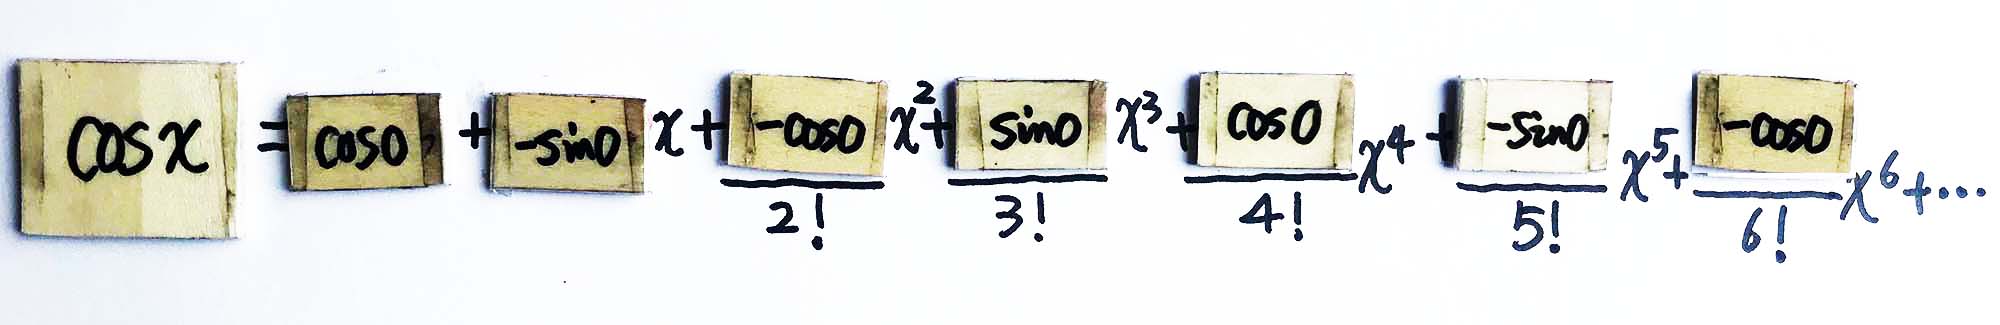 cosx = cos0 + -sin0 x + -cos0/2! x² + sin0/3! x³ + cos0/4! x⁴ + -sin0/5! x⁵ + -cos0/6! x⁶ + ...